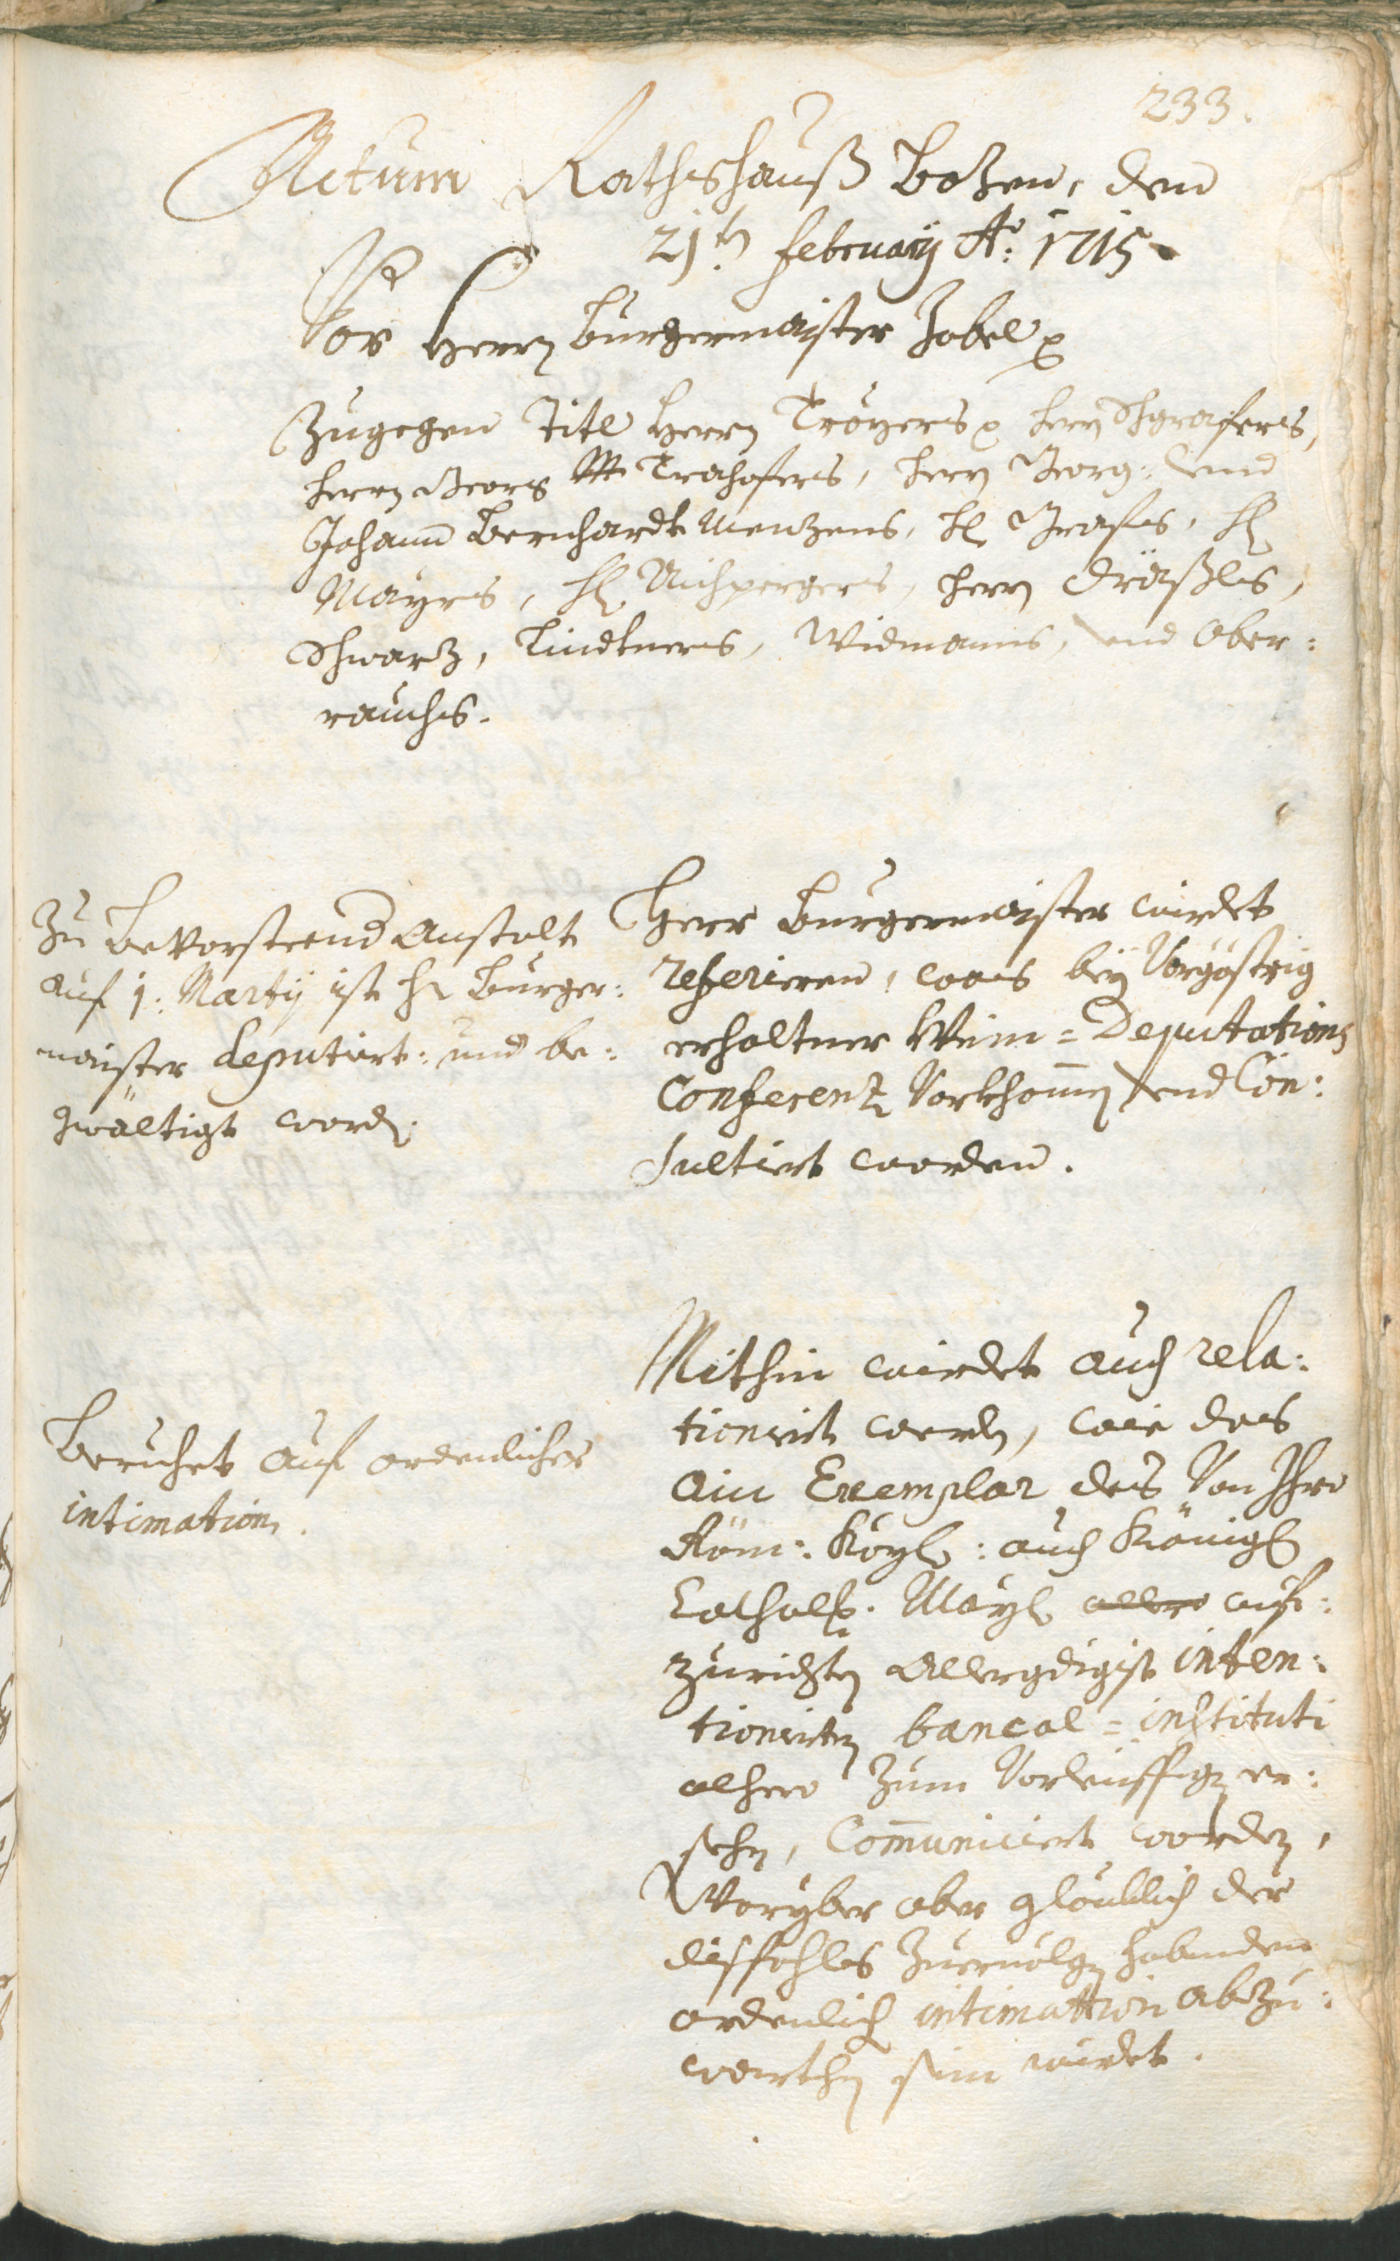 233.
Actum Rathshauß Bozen, den
21ṭh february Aº: 1715
Vor Herrn Burgermaister Zobel
Zugegen Titl Herrn Troyers Herrn Schgrafers,
Herrn Georg Trahofers, Herrn Georg: und
Johann Bernhardt Menzens, H. Grafs, H.
Mayrs, H. Aichpergers, Herrn Dräßls,
Schwarz, Lindtners, Widmanns, und Ober:
rauchs.
Zu bevorsteend Anstalt
auf 1: Marty ist Hr Burger:
maister deputiert: und be:
gwältigt word.
Herr Burgermaister wirdet
referieren, was bey Vorgöstrig
erhaltner Wein=Deputations
Conferenz Vorkhomen und Con:
sultiert worden.
Beruhet auf ordenlicher
intimation.
Mithin wirdet auch rela:
tioniert werdn, wie das
ain Exemplar des Von Ihro
Röm: Kayl: auch Königl
Catholl: Mayl allero auf:
zurichten Allergdigist inten:
tionierten bancal=instituti
alhero zum Vorleiffigen er:
sehn, Communiciert worden,
Woryber aber glaublich der
disfahls zuervolgn habenden
ordenlich intimation abzu:
warthen sein wirdet.